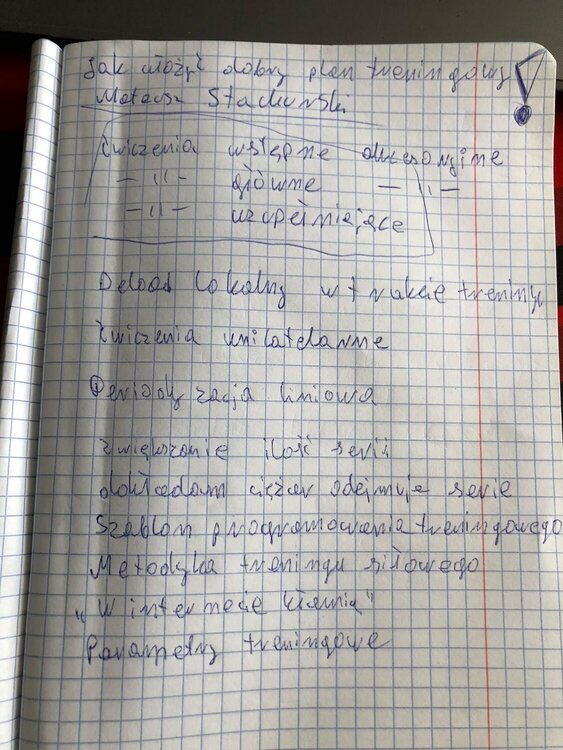 Jak ułożyć dobry plan treningowy
Mateusz Stachurski
Ćwiczenia wstępne
— 11 — główne — 11 —
— 11 — uzupełniające
Deload lokalny w trakcie treningu
Ćwiczenia unilateralne
Periodyzacja liniowa
Zwiększanie ilość serii
dokładam ciężar odejmuje serie
Szablon programowania treningowego
Metodyka treningu siłowego
„W internecie kłamią"
Parametry treningowe